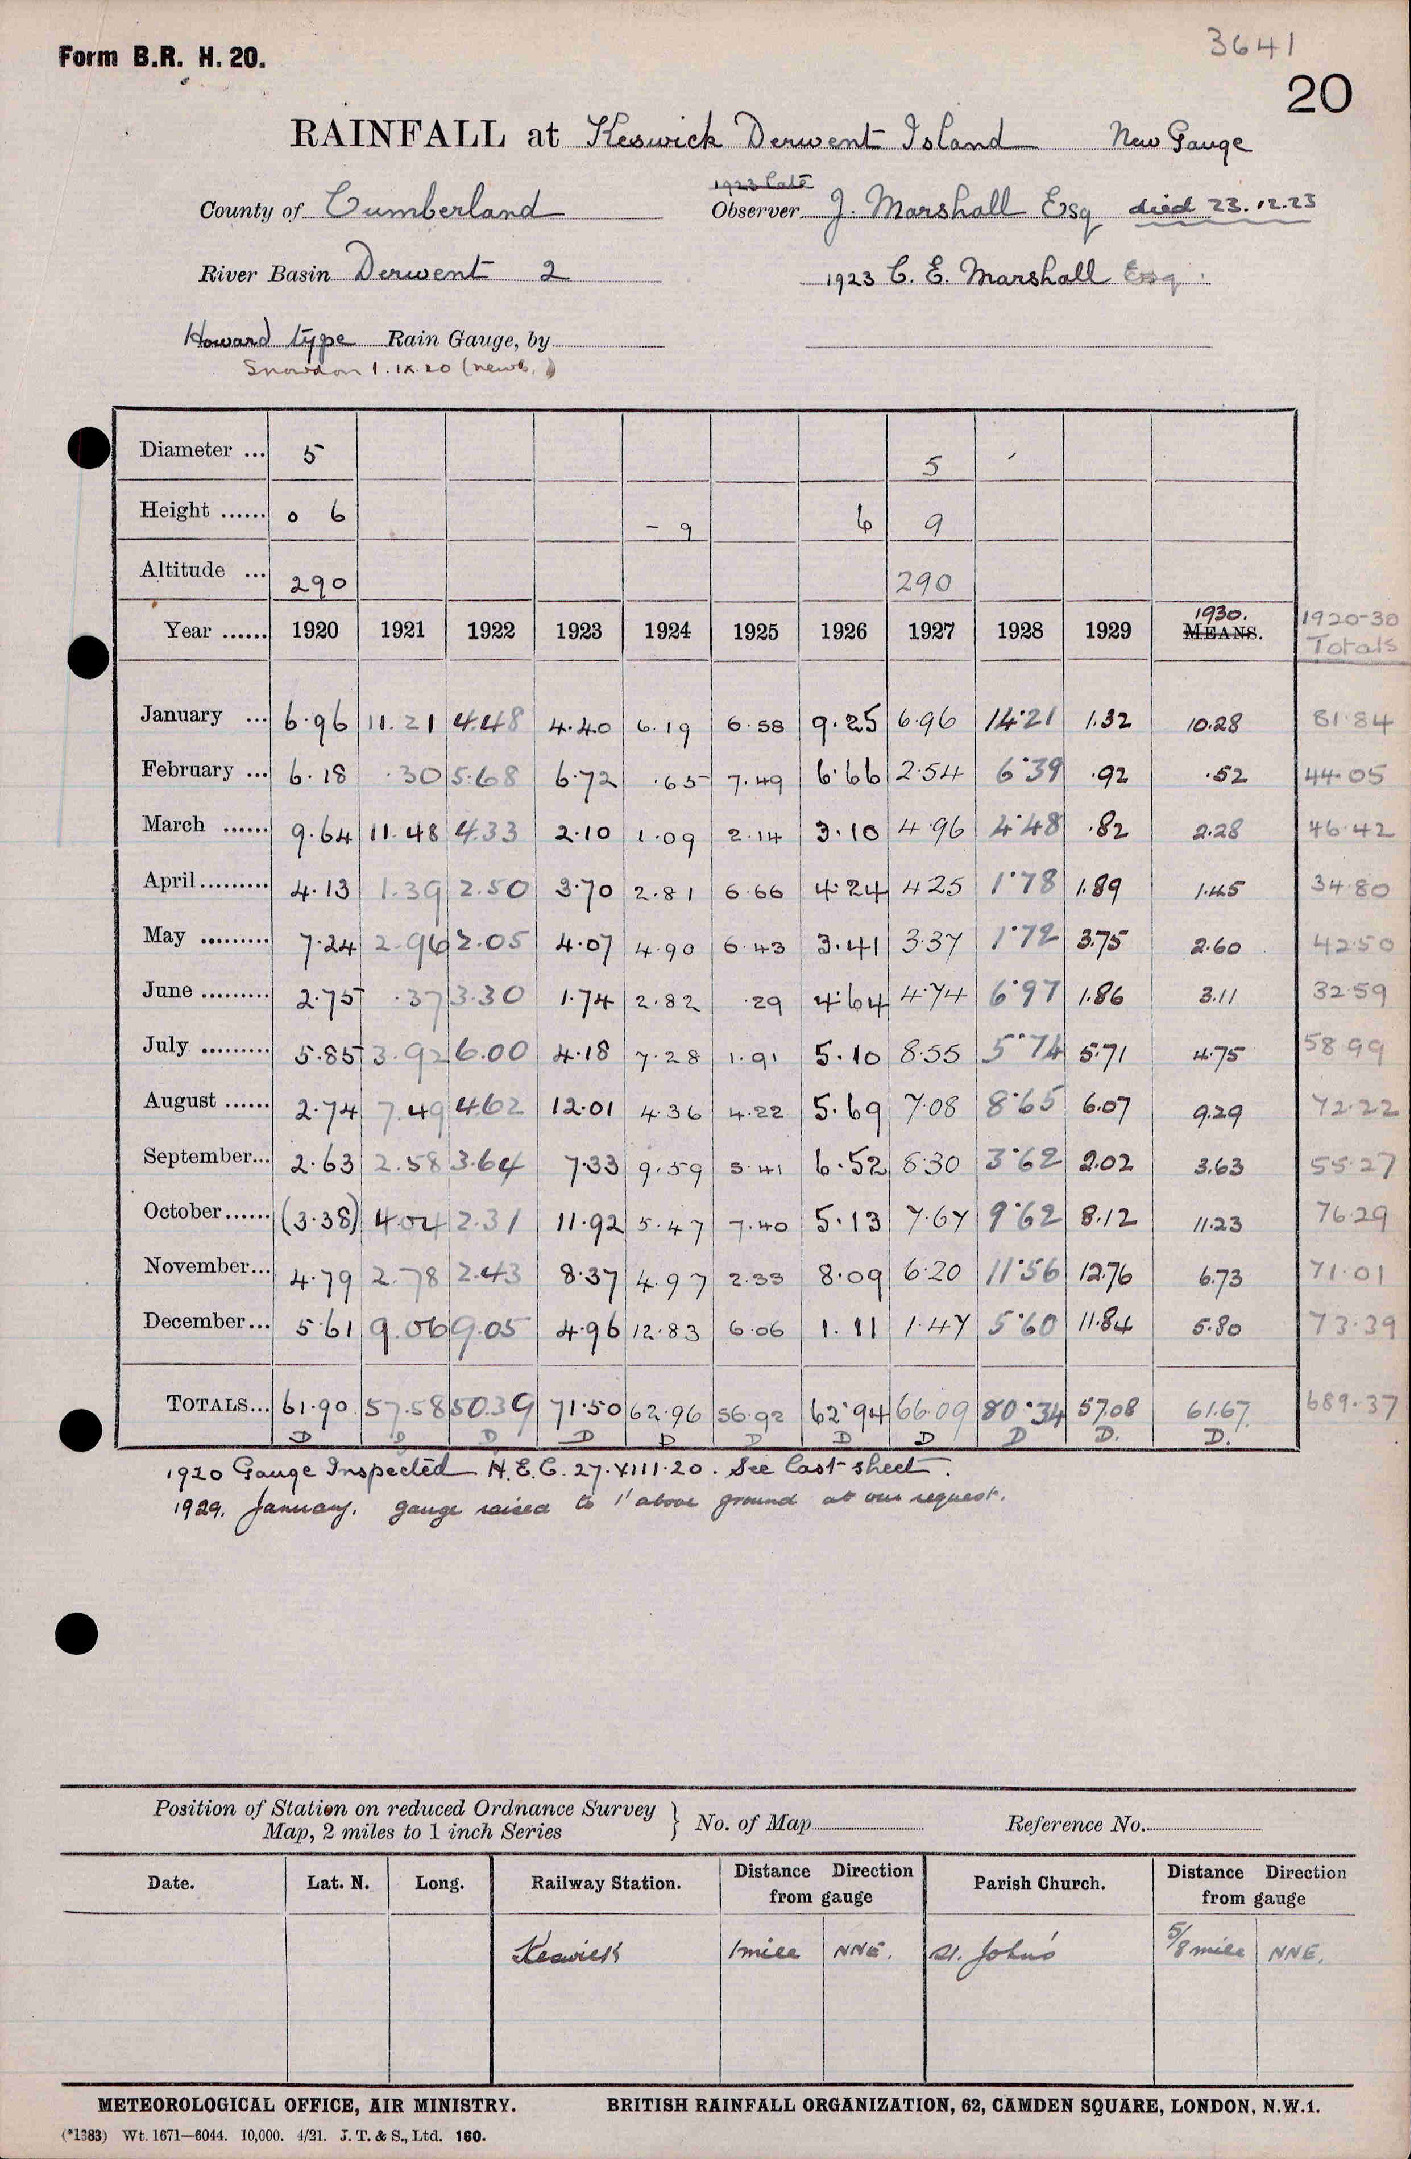 3641
Form B.R. H. 20.
20
RAINFALL at Keswick Derwent Island New Gauge
1923 late
County of Cumberland Observer J. Marshall Esq died 23.12.23
River Basin Derwent 2 1923 C. E. Marshall Esq.
Howard type Rain Gauge, by
Snowdon 1.IX.20
Diameter ... 5 5
Height ...... 0 6 - 9 6 9
Altitude ... 290 290
Year ...... 1920 1921 1922 1923 1924 1925 1926 1927 1928 1929 1930. MEANS. 1920-30 Totals
January ... 6.96 11.21 4.48 4.40 6.19 6.58 9.25 6.96 14.21 1.32 10.28 81.84
February ... 6.18 .30 5.68 6.72 .65 7.49 6.66 2.54 6.39 .92 .52 44.05
March ...... 9.64 11.48 4.33 2.10 1.09 2.14 3.10 4.96 4.48 .82 2.28 46.42
April ......... 4.13 1.39 2.50 3.70 2.81 6.66 4.24 4.25 1.78 1.89 1.45 34.80
May ......... 7.24 2.96 2.05 4.07 4.90 6.43 3.41 3.37 1.72 3.75 2.60 42.50
June ......... 2.75 .37 3.30 1.74 2.82 .29 4.64 4.74 6.97 1.86 3.11 32.59
July ......... 5.85 3.92 6.00 4.18 7.28 1.91 5.10 8.55 5.74 5.71 4.75 58.99
August ...... 2.74 7.49 4.62 12.01 4.36 4.22 5.69 7.08 8.65 6.07 9.29 72.22
September... 2.63 2.58 3.64 7.33 9.59 5.41 6.52 8.30 3.62 2.02 3.63 55.27
October...... (3.38) 4.04 2.31 11.92 5.47 7.40 5.13 7.67 9.62 8.12 11.23 76.29
November... 4.79 2.78 2.43 8.37 4.97 2.33 8.09 6.20 11.56 12.76 6.73 71.01
December... 5.61 9.06 9.05 4.96 12.83 6.06 1.11 1.47 5.60 11.84 5.80 73.39
TOTALS... 61.90 57.58 50.39 71.50 62.96 56.92 62.94 66.09 80.34 57.08 61.67 689.37
D D D D D D D D D D. D.
1920 Gauge Inspected H.E.C. 27.VIII.20. See last sheet.
1929. January. gauge raised to 1' above ground at our request.
Position of Station on reduced Ordnance Survey } No. of Map Reference No.
Map, 2 miles to 1 inch Series
Date. Lat. N. Long. Railway Station. Distance Direction from gauge Parish Church. Distance Direction from gauge
Keswick 1 mile NNE. St. John's 5/8 mile NNE.
METEOROLOGICAL OFFICE, AIR MINISTRY. BRITISH RAINFALL ORGANIZATION, 62, CAMDEN SQUARE, LONDON, N.W.1.
(*1383) Wt. 1671—6044. 10,000. 4/21. J. T. & S., Ltd. 160.